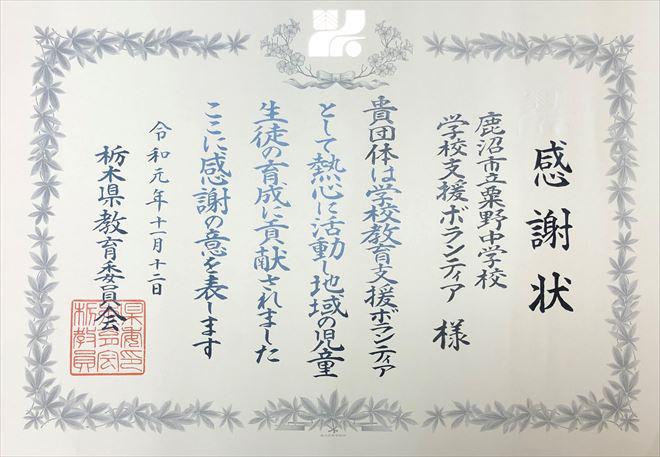 感謝状
鹿沼市立粟野中学校
学校支援ボランティア 様
貴団体は学校教育支援ボランティア
として熱心に活動し地域の児童
生徒の育成に貢献されました
ここに感謝の意を表します
令和元年十一月十二日
栃木県教育委員会